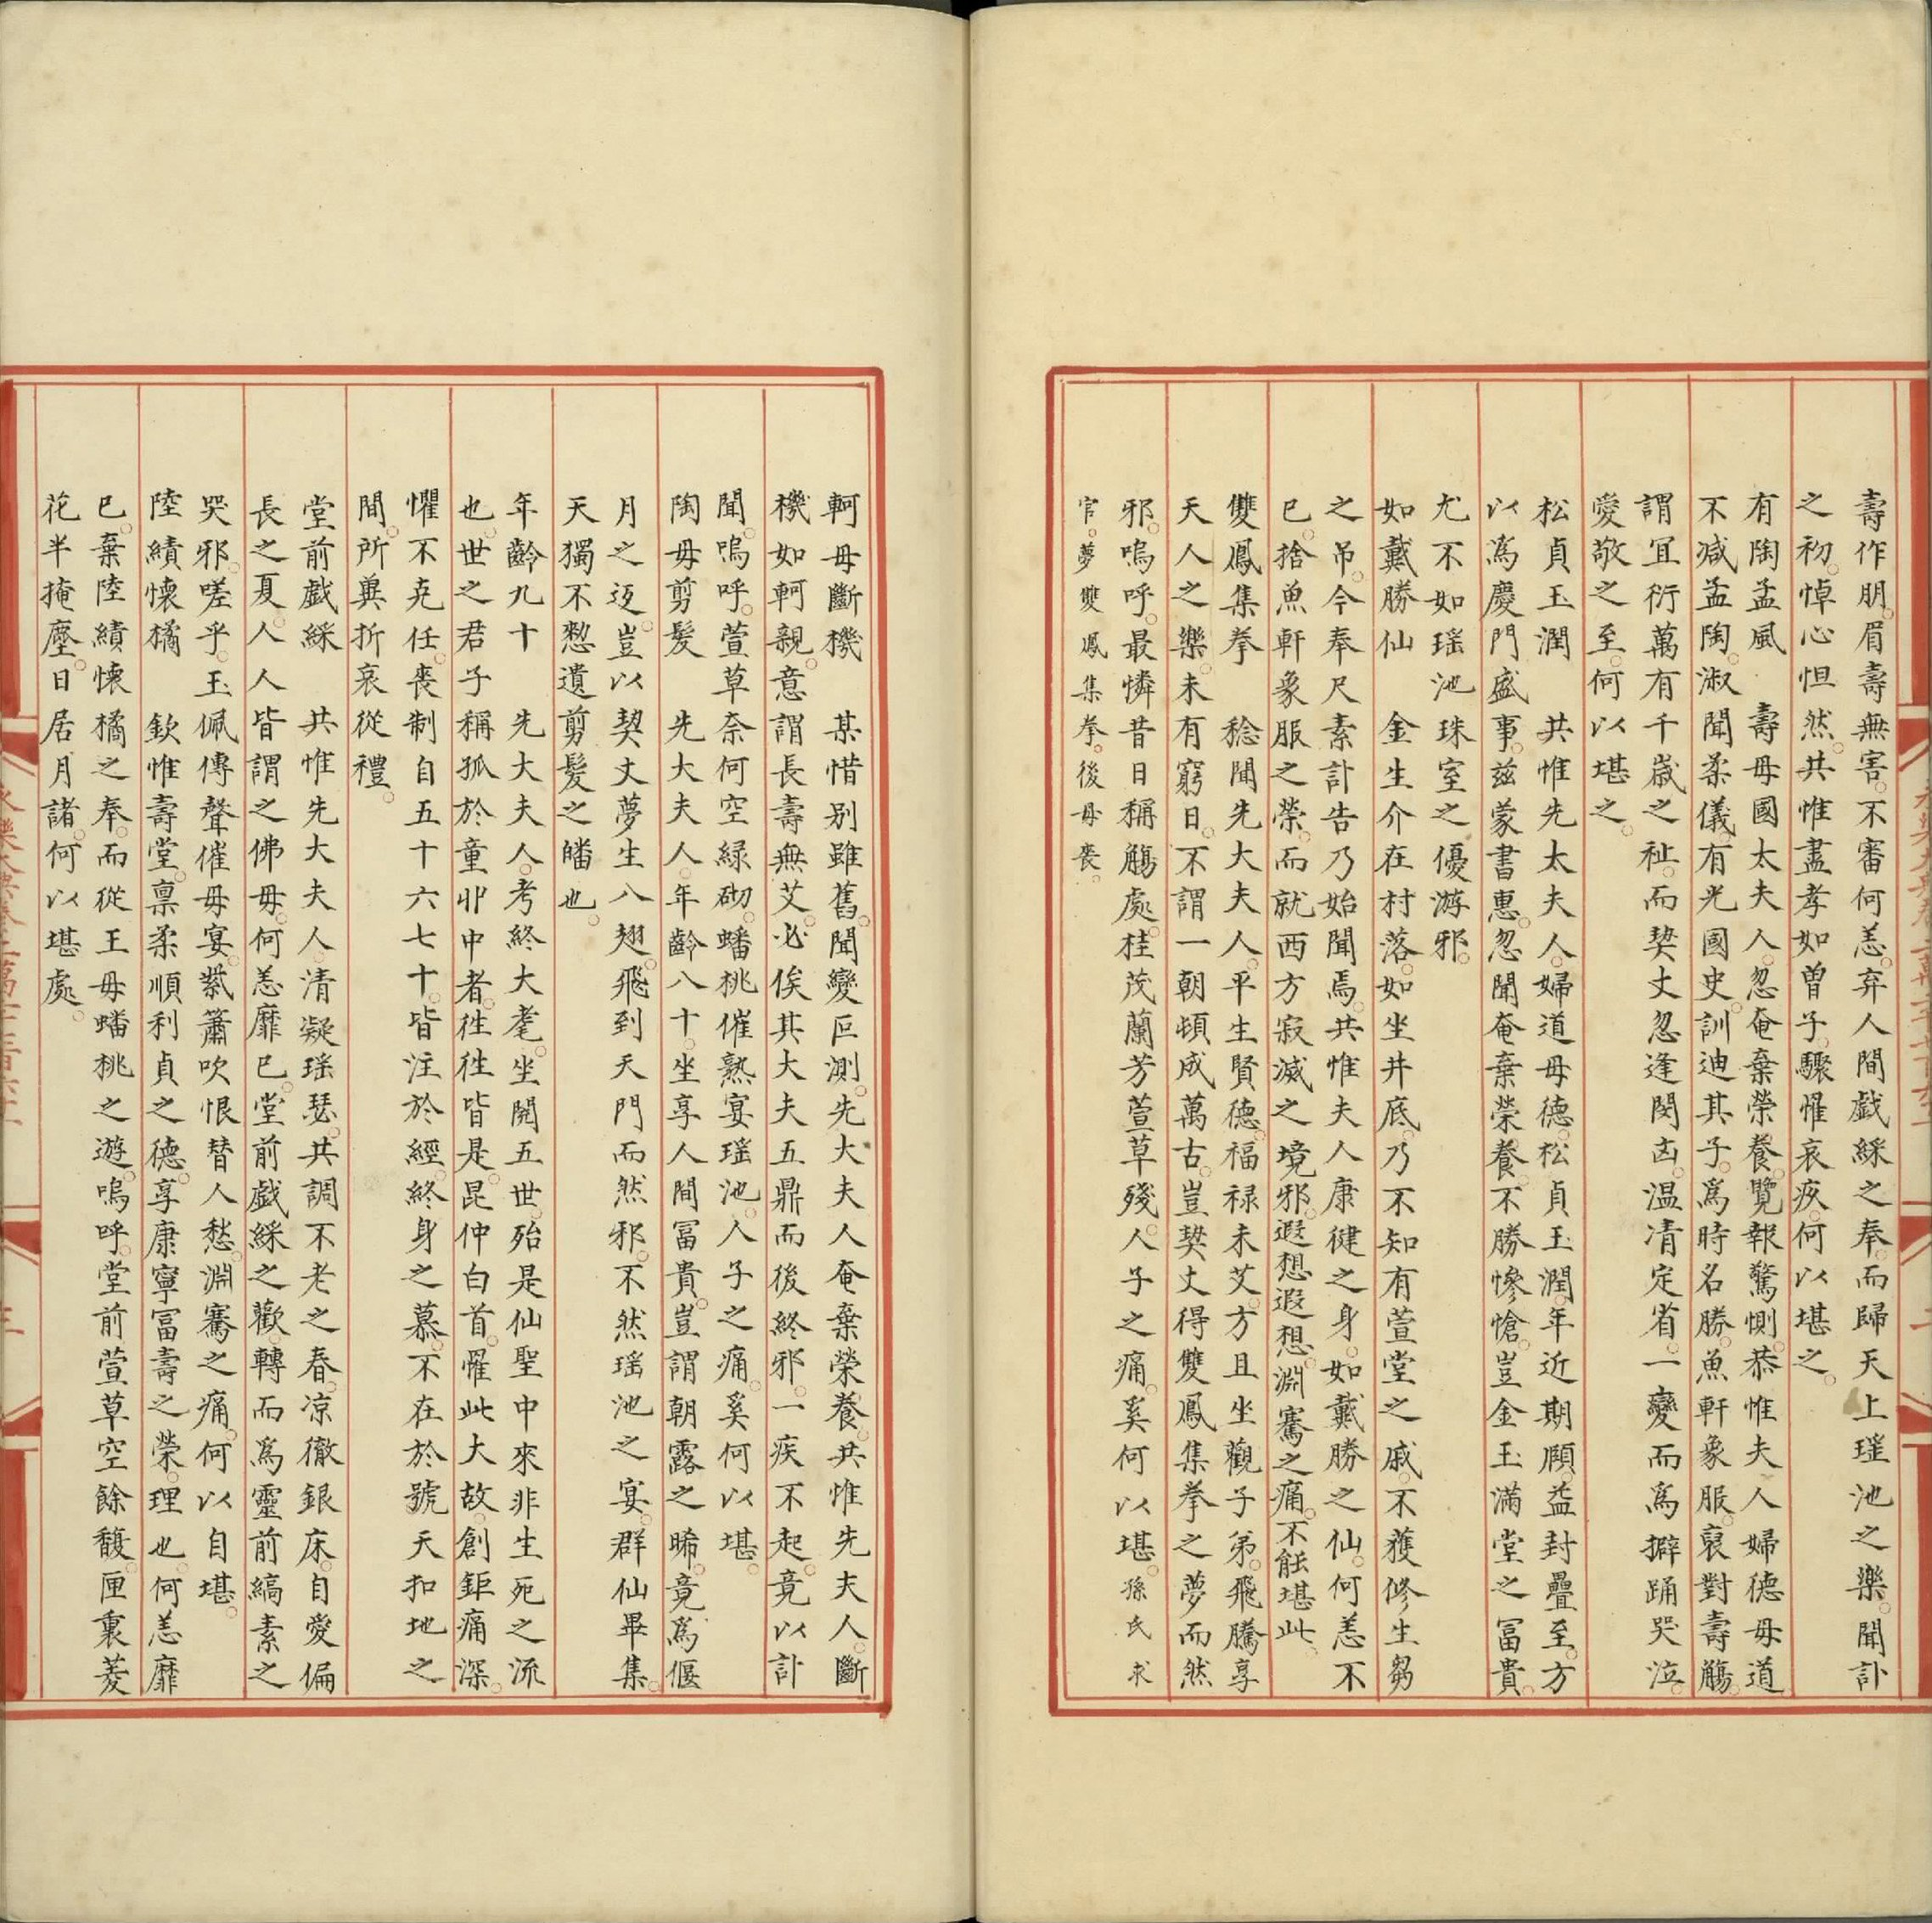 壽作朋。眉壽無害。不審何恙。弃人間戲綵之奉。而歸天上瑤池之樂。聞訃
之初。悼心怛然。共惟盡孝如曾子。驟罹哀疚。何以堪之。
有陶孟風　壽母國太夫人。忽奄棄榮養。覽報驚惻。恭惟夫人婦德母道
不减孟陶。淑聞柔儀。有光國史。訓迪其子。爲時名勝。魚軒象服。裒對壽觴。
謂冝衍萬有千嵗之祉。而𢍆丈忽逢閔凶。温凊定省。一變而爲擗踊哭泣。
愛敬之至。何以堪之。
松貞玉潤　共惟先太夫人。婦道母德。松貞玉潤。年近期頥。益封疊至。方
以爲慶門盛事。兹蒙書惠。忽聞奄棄榮養。不勝慘愴。豈金玉滿堂之冨貴。
尤不如瑶池珠室之優游邪。
如戴勝仙　金生介在村落。如坐井底。乃不知有萱堂之戚。不獲修生芻
之吊。今奉尺素計告。乃始聞焉。共惟夫人康徤之身。如戴勝之仙。何恙不
已。捨魚軒象服之榮。而就西方寂滅之境邪。遐想遐想。淵騫之痛。不能堪此。
雙鳳集拳　稔聞先大夫人。平生賢德。福禄未艾。方且坐觀子弟。飛騰享
天人之樂。未有窮日。不謂一朝頓成萬古。豈𢍆丈得雙鳳集拳之夢而然
邪。嗚呼。最憐昔日稱觴處。桂茂蘭芳萱草殘。人子之痛。奚何以堪。孫氏求
官。夢雙鳳集拳。後母喪。
軻母斷機　某惜别雖舊。聞變叵測。先大夫人奄棄榮養。共惟先夫人。斷
機如軻親。意謂長壽無艾。必俟其大夫五鼎而後終邪。一疾不起。竟以訃
聞。嗚呼。萱草奈何空緑砌。蟠桃催熟宴瑶池。人子之痛。奚何以堪。
陶母剪髮　先大夫人。年齡八十。坐享人間冨貴。豈謂朝露之晞。竟爲偃
月之迓。豈以𢍆丈夢生八翅。飛到天門而然邪。不然瑶池之宴。群仙畢集。
天獨不憗遺剪髮之皤也。
年齡九十　先大夫人。考終大耄。坐閲五世。殆是仙聖中來。非生死之流
也。世之君子稱孤於童丱中者。徃徃皆是。昆仲白首。罹此大故。創鉅痛深。
懼不克任。喪制自五十六七十。皆注於經。終身之慕。不在於號天扣地之
間。所兾折哀從禮。
堂前戲綵　共惟先大夫人。清凝瑶瑟。共調不老之春。凉徹銀床。自愛偏
長之夏。人人皆謂之佛母。何恙靡已。堂前戲綵之歡。轉而爲靈前縞素之
哭邪。嗟乎。玉佩傳聲催母宴。紫簫吹恨替人愁。淵騫之痛。何以自堪。
陸績懷橘　欽惟壽堂。禀柔順利貞之德。享康寧冨壽之榮。理也。何恙靡
已。棄陸績懷橘之奉。而從王母蟠桃之遊。嗚呼。堂前萱草空餘馥。匣裏菱
花半掩塵。日居月諸。何以堪處。